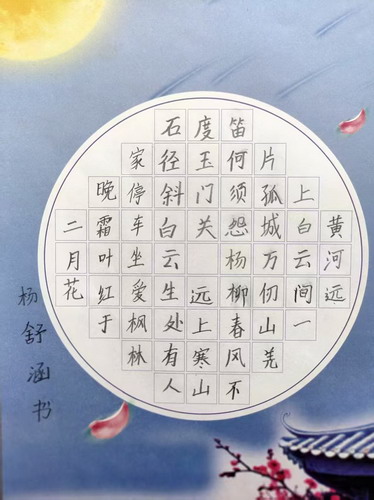 黄河远
上白云间一
片孤城万仞山羌
笛何须怨杨柳春风不
度玉门关 远上寒山
石径斜白云生处有人
家停车坐爱枫林
晚霜叶红于
二月花
杨舒涵书